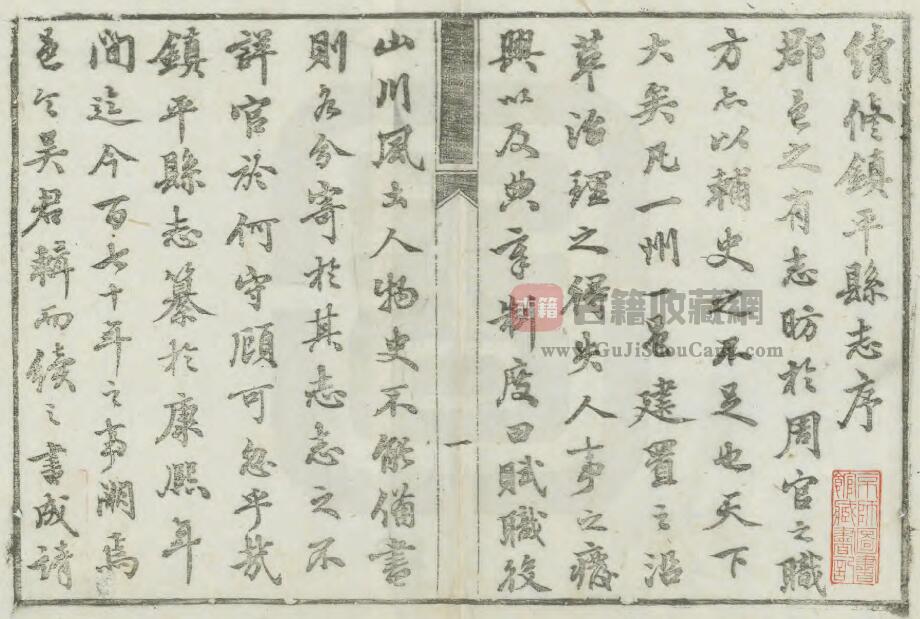 續修鎮平縣志序
郡邑之有志昉於周官之職
方亦以輔史之不足也天下
大矣凡一州一邑建置之沿
革治理之得失人事之廢
興以及典章制度田賦職役
山川風土人物史不能備書
則各分寄於其志志之不
詳官於何守顧可忽乎哉
鎮平縣志纂於康熙年
間迄今百七十年之事闕焉
邑令吳君輯而續之書成請
一
京師圖書館藏書記
古籍收藏網
www.GuJiShouCang.com